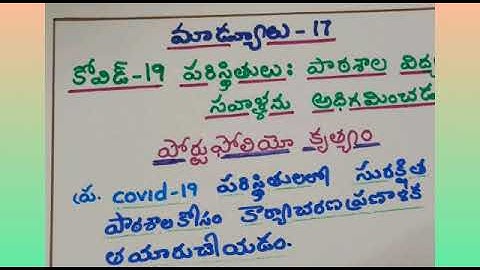 మాడ్యూలు - 17
కోవిడ్-19 పరిస్థితులు: పాఠశాల
సవాళ్ళను అధిగమించడ
పోర్టుఫోలియో కృత్యం
ప్ర. covid-19 పరిస్థితులలో సురక్షిత
పాఠశాల కోసం కార్యాచరణ ప్రణాళిక
తయారుచేయడం.